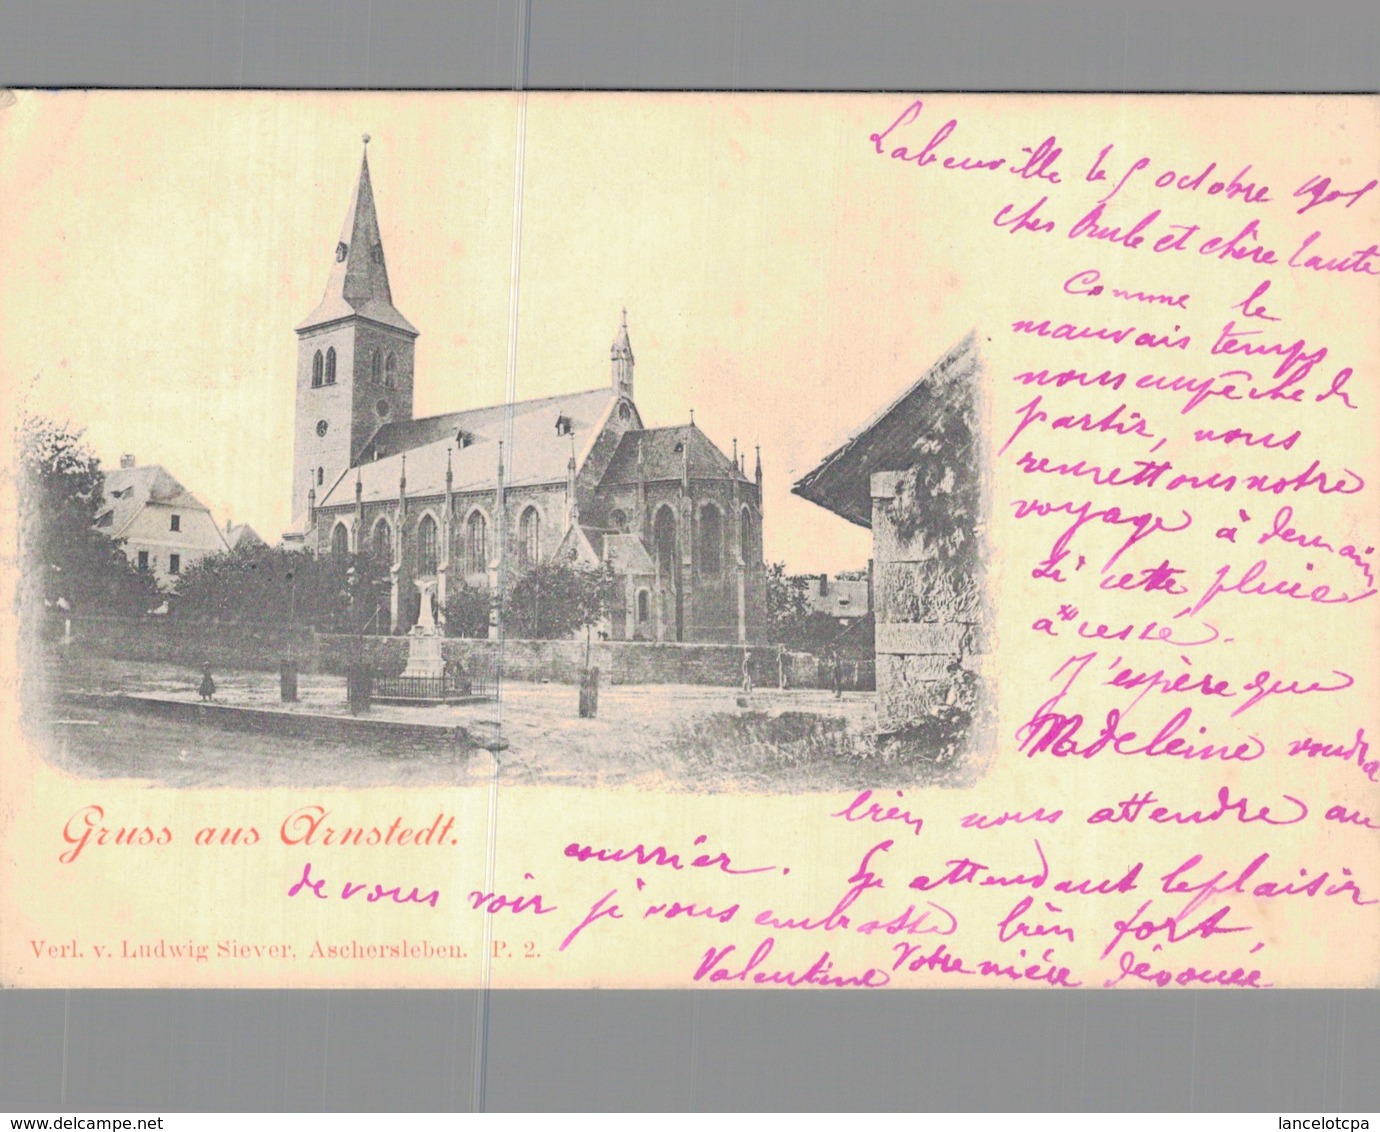 Labeuville le 5 octobre 1901
cher Oncle et chère tante
Comme le
mauvais temps
nous empêche de
partir, nous
remettons notre
voyage à demain
si cette pluie
a cessé.
J'espère que
Madeleine voudra
bien nous attendre au
courrier. En attendant le plaisir
de vous voir je vous embrasse bien fort,
Votre nièce dévouée
Valentine
Gruss aus Arnstedt.
Verl. v. Ludwig Siever, Aschersleben. P. 2.
www.delcampe.net
lancelotcpa